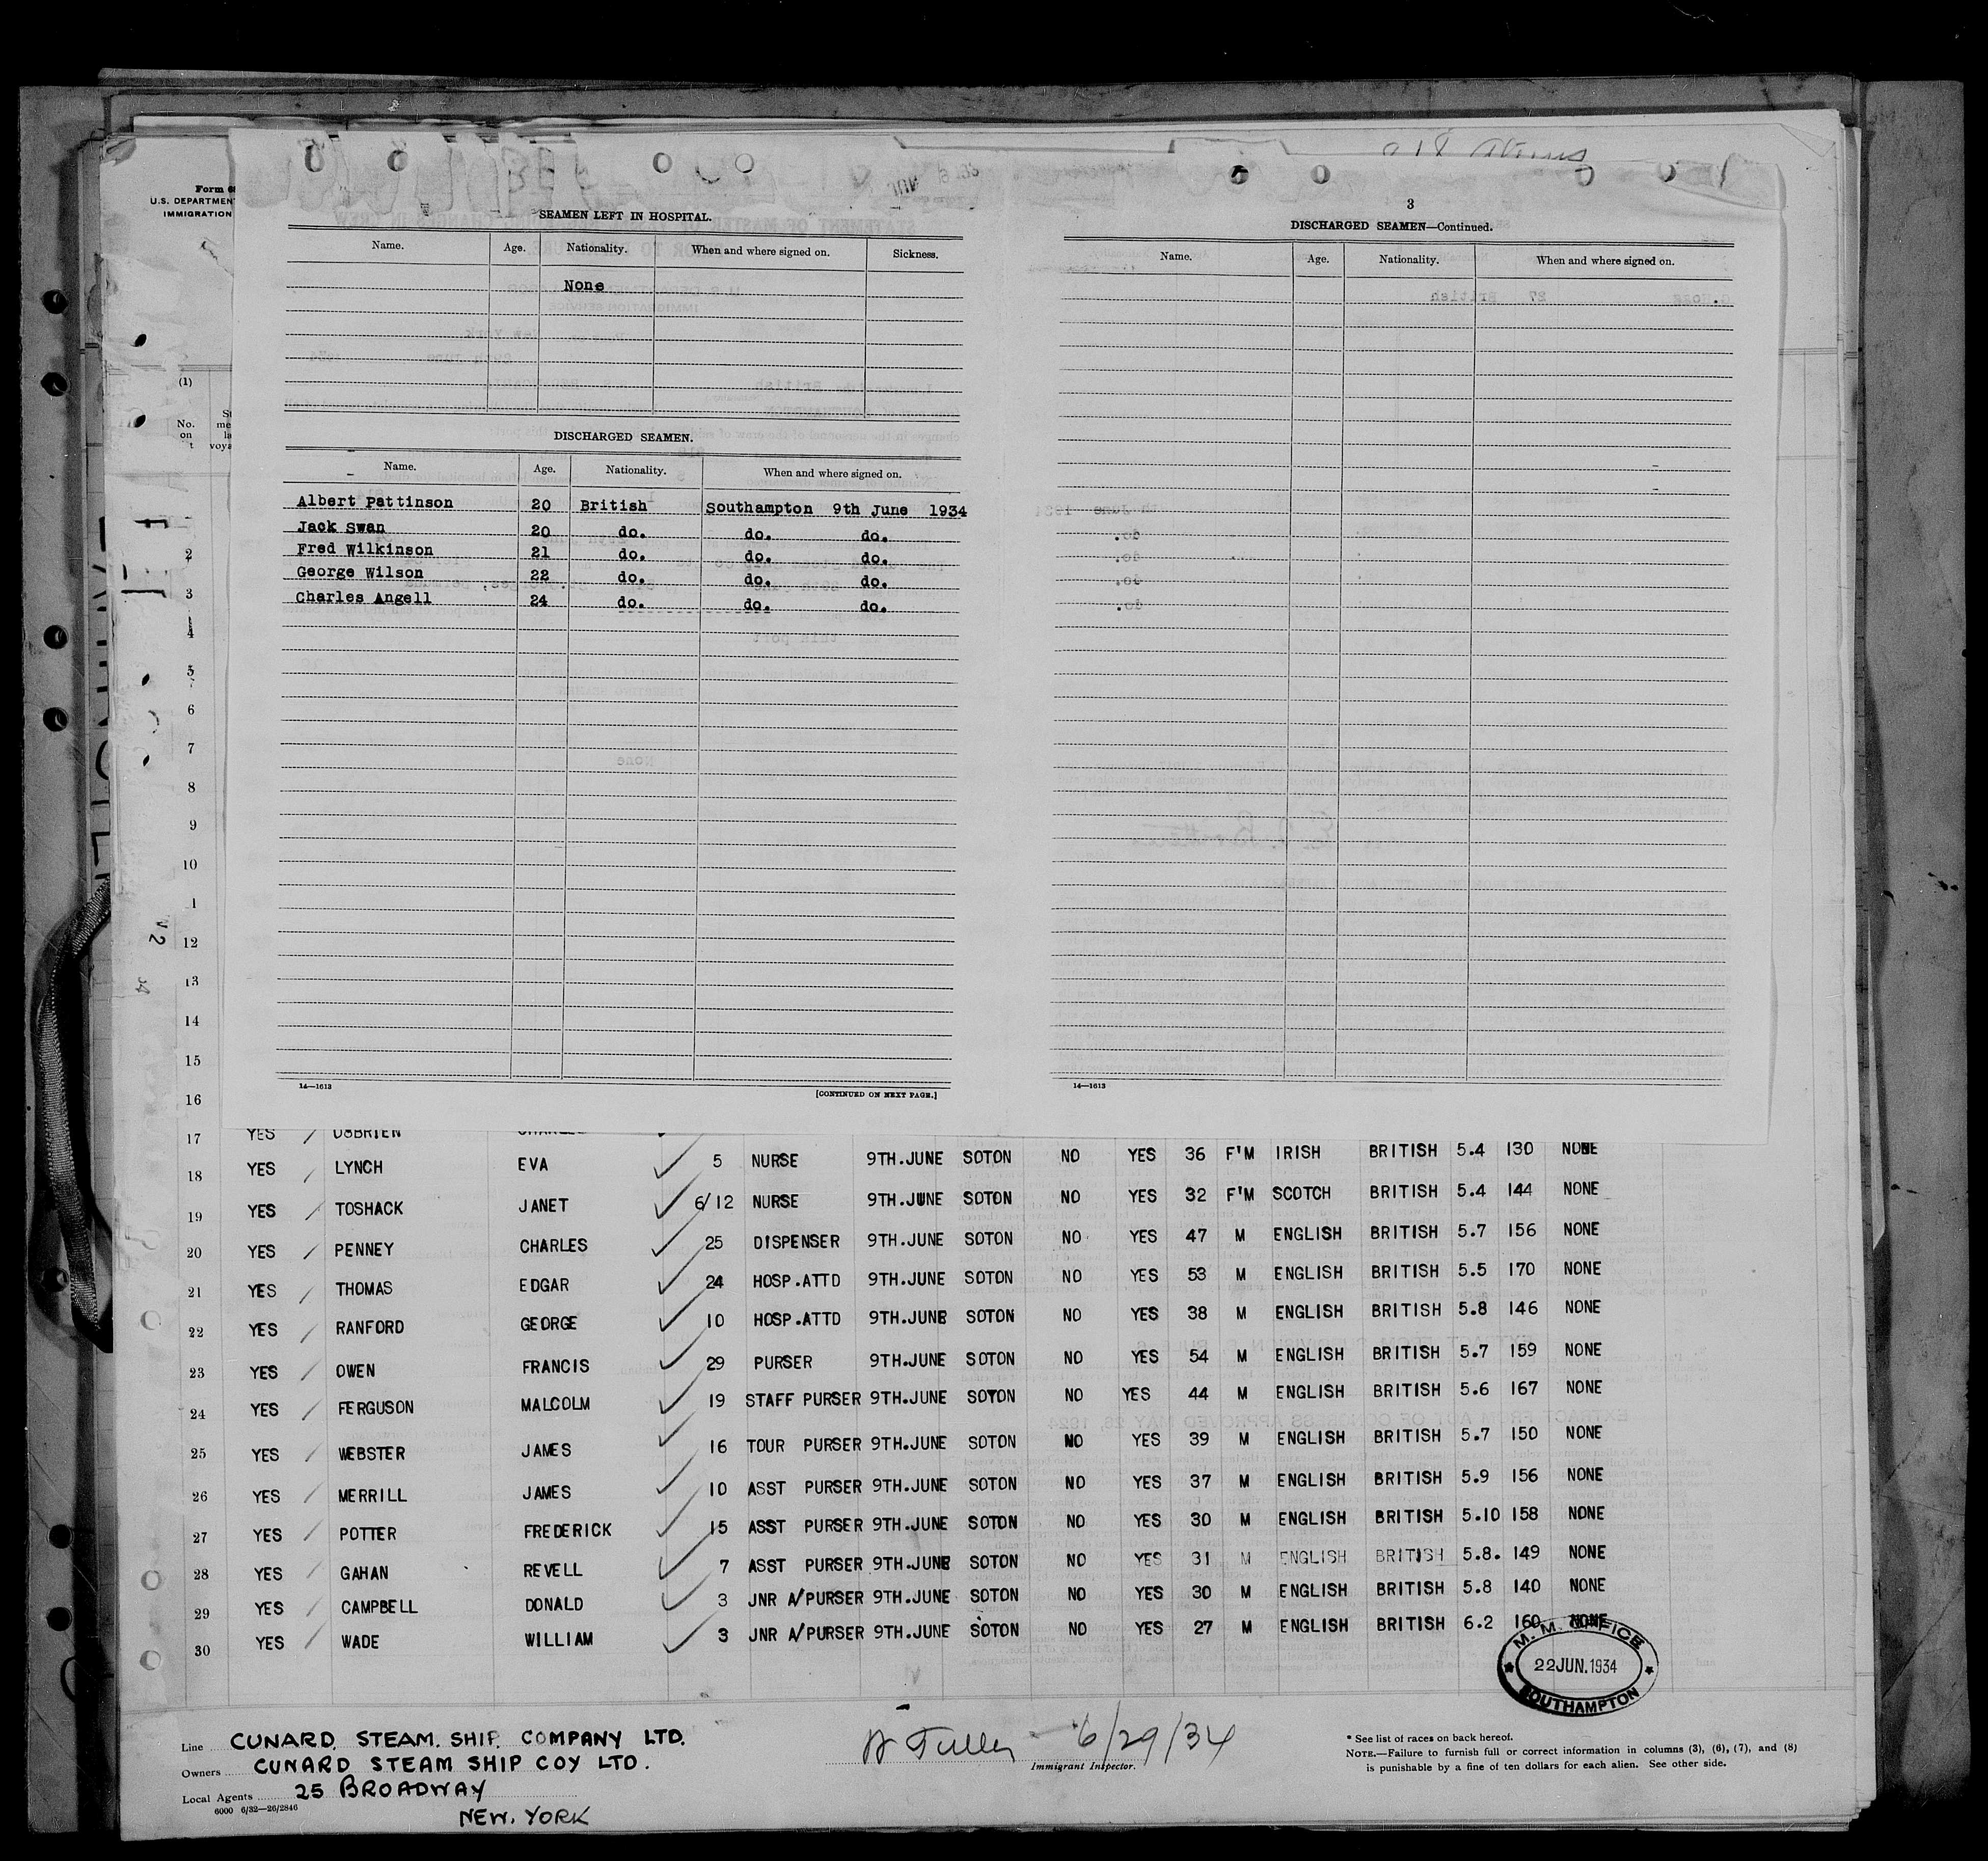 Form
U.S. DEPARTMEN
IMMIGRATION
(1)
No.
on
SEAMEN LEFT IN HOSPITAL.
Name. Age. Nationality. When and where signed on. Sickness.
None
DISCHARGED SEAMEN.
Name. Age. Nationality. When and where signed on.
Albert Pattinson 20 British Southampton 9th June 1934
Jack Swan 20 do. do. do.
Fred Wilkinson 21 do. do. do.
George Wilson 22 do. do. do.
Charles Angell 24 do. do. do.
14—1613 [CONTINUED ON NEXT PAGE.]
3
DISCHARGED SEAMEN—Continued.
Name. Age. Nationality. When and where signed on.
14—1613
2
3
4
5
6
7
8
9
10
12
13
14
15
16
17 YES O'BRIEN
18 YES LYNCH EVA 5 NURSE 9TH.JUNE SOTON NO YES 36 F'M IRISH BRITISH 5.4 130 NONE
19 YES TOSHACK JANET 6/12 NURSE 9TH.JUNE SOTON NO YES 32 F'M SCOTCH BRITISH 5.4 144 NONE
20 YES PENNEY CHARLES 25 DISPENSER 9TH.JUNE SOTON NO YES 47 M ENGLISH BRITISH 5.7 156 NONE
21 YES THOMAS EDGAR 24 HOSP.ATTD 9TH.JUNE SOTON NO YES 53 M ENGLISH BRITISH 5.5 170 NONE
22 YES RANFORD GEORGE 10 HOSP.ATTD 9TH.JUNE SOTON NO YES 38 M ENGLISH BRITISH 5.8 146 NONE
23 YES OWEN FRANCIS 29 PURSER 9TH.JUNE SOTON NO YES 54 M ENGLISH BRITISH 5.7 159 NONE
24 YES FERGUSON MALCOLM 19 STAFF PURSER 9TH.JUNE SOTON NO YES 44 M ENGLISH BRITISH 5.6 167 NONE
25 YES WEBSTER JAMES 16 TOUR PURSER 9TH.JUNE SOTON NO YES 39 M ENGLISH BRITISH 5.7 150 NONE
26 YES MERRILL JAMES 10 ASST PURSER 9TH.JUNE SOTON NO YES 37 M ENGLISH BRITISH 5.9 156 NONE
27 YES POTTER FREDERICK 15 ASST PURSER 9TH.JUNE SOTON NO YES 30 M ENGLISH BRITISH 5.10 158 NONE
28 YES GAHAN REVELL 7 ASST PURSER 9TH.JUNE SOTON NO YES 31 M ENGLISH BRITISH 5.8. 149 NONE
29 YES CAMPBELL DONALD 3 JNR A/PURSER 9TH.JUNE SOTON NO YES 30 M ENGLISH BRITISH 5.8 140 NONE
30 YES WADE WILLIAM 3 JNR A/PURSER 9TH.JUNE SOTON NO YES 27 M ENGLISH BRITISH 6.2 160 NONE
M. M. OFFICE
22 JUN. 1934
SOUTHAMPTON
Line CUNARD. STEAM. SHIP. COMPANY LTD.
Owners CUNARD STEAM SHIP COY LTD.
Local Agents 25 BROADWAY
NEW. YORK
6000 6/32—26/2846
Fuller 6/29/34
Immigrant Inspector.
* See list of races on back hereof.
NOTE.—Failure to furnish full or correct information in columns (3), (6), (7), and (8)
is punishable by a fine of ten dollars for each alien. See other side.